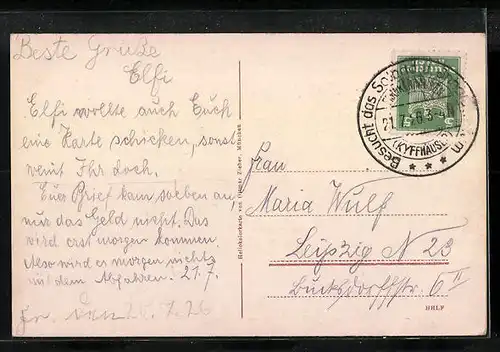 Beste Grüße
Elfi
Elfi wollte auch Euch
eine Karte schicken, sonst
weint Ihr doch.
Euer Brief kam soeben an,
nur das Geld nicht. Das
wird erst morgen kommen.
Also wird er morgen nichts
mit dem Abfahren. 21.7.
den 20.7.26
Heliokolorkarte von Ottmar Zieher, München
Besucht das
21.7.26 3-4
(KYFFHÄUSER)
Frau
Maria Wulf
Leipzig N 23
6 II
HELF